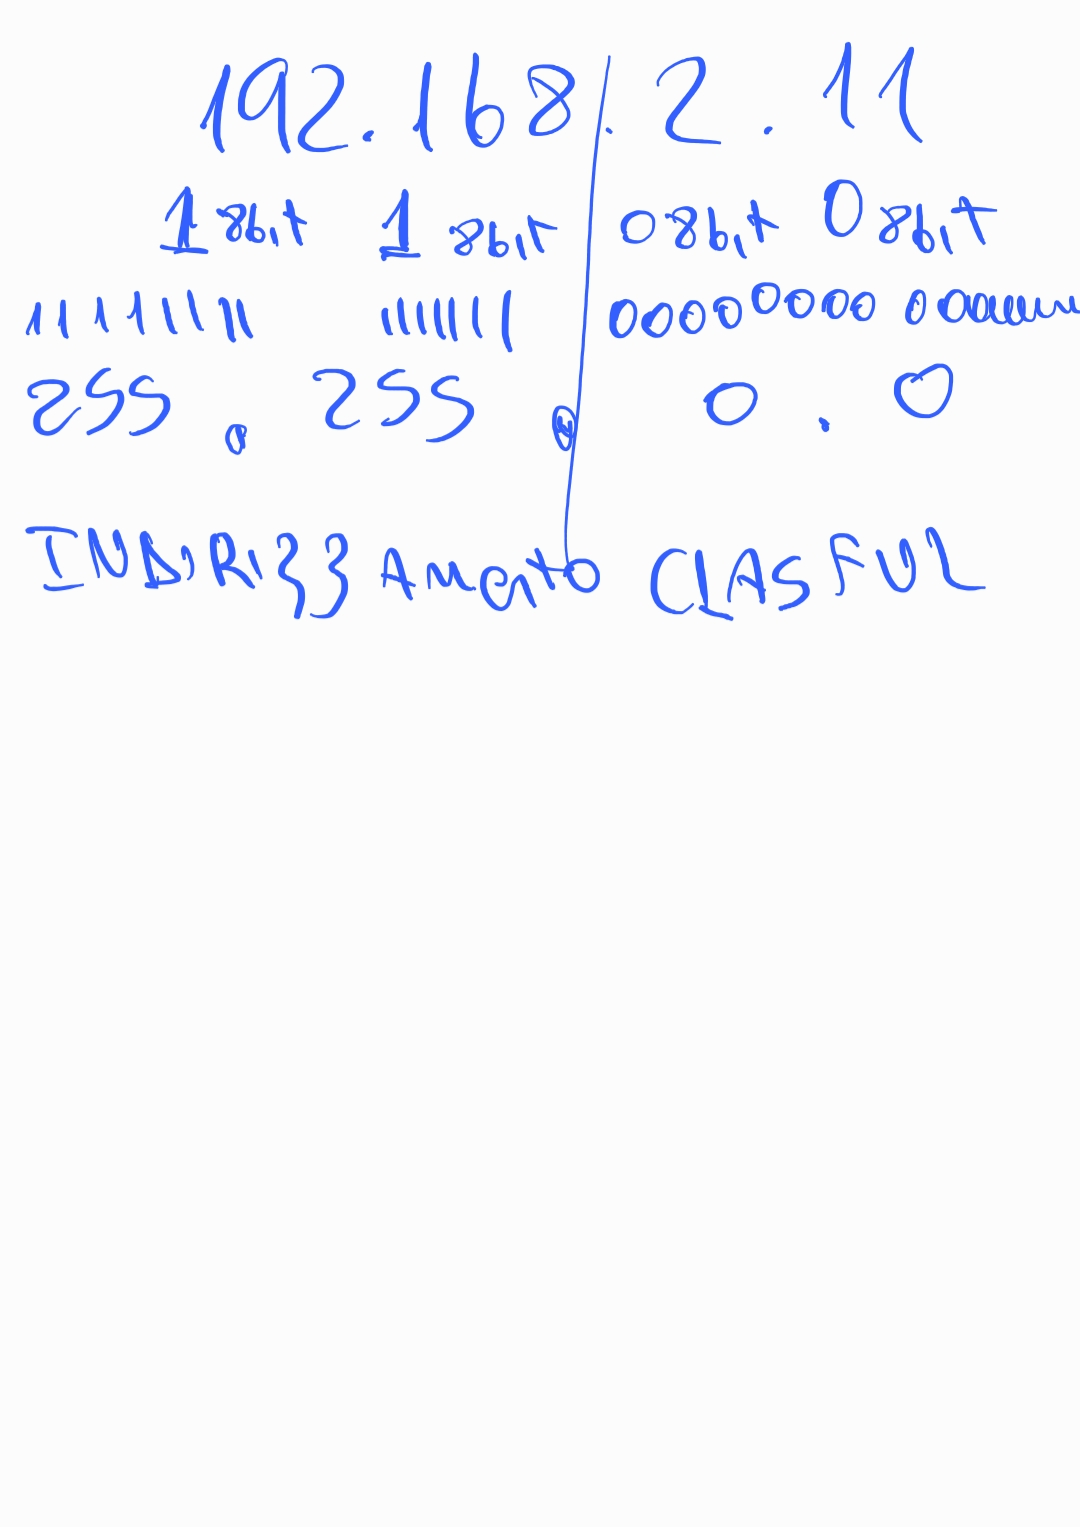 192.168.2.11
1 8bit 1 8bit 0 8bit 0 8bit
11111111 11111111 00000000
255.255.0.0
INDIRIZZAmento CLASFUL